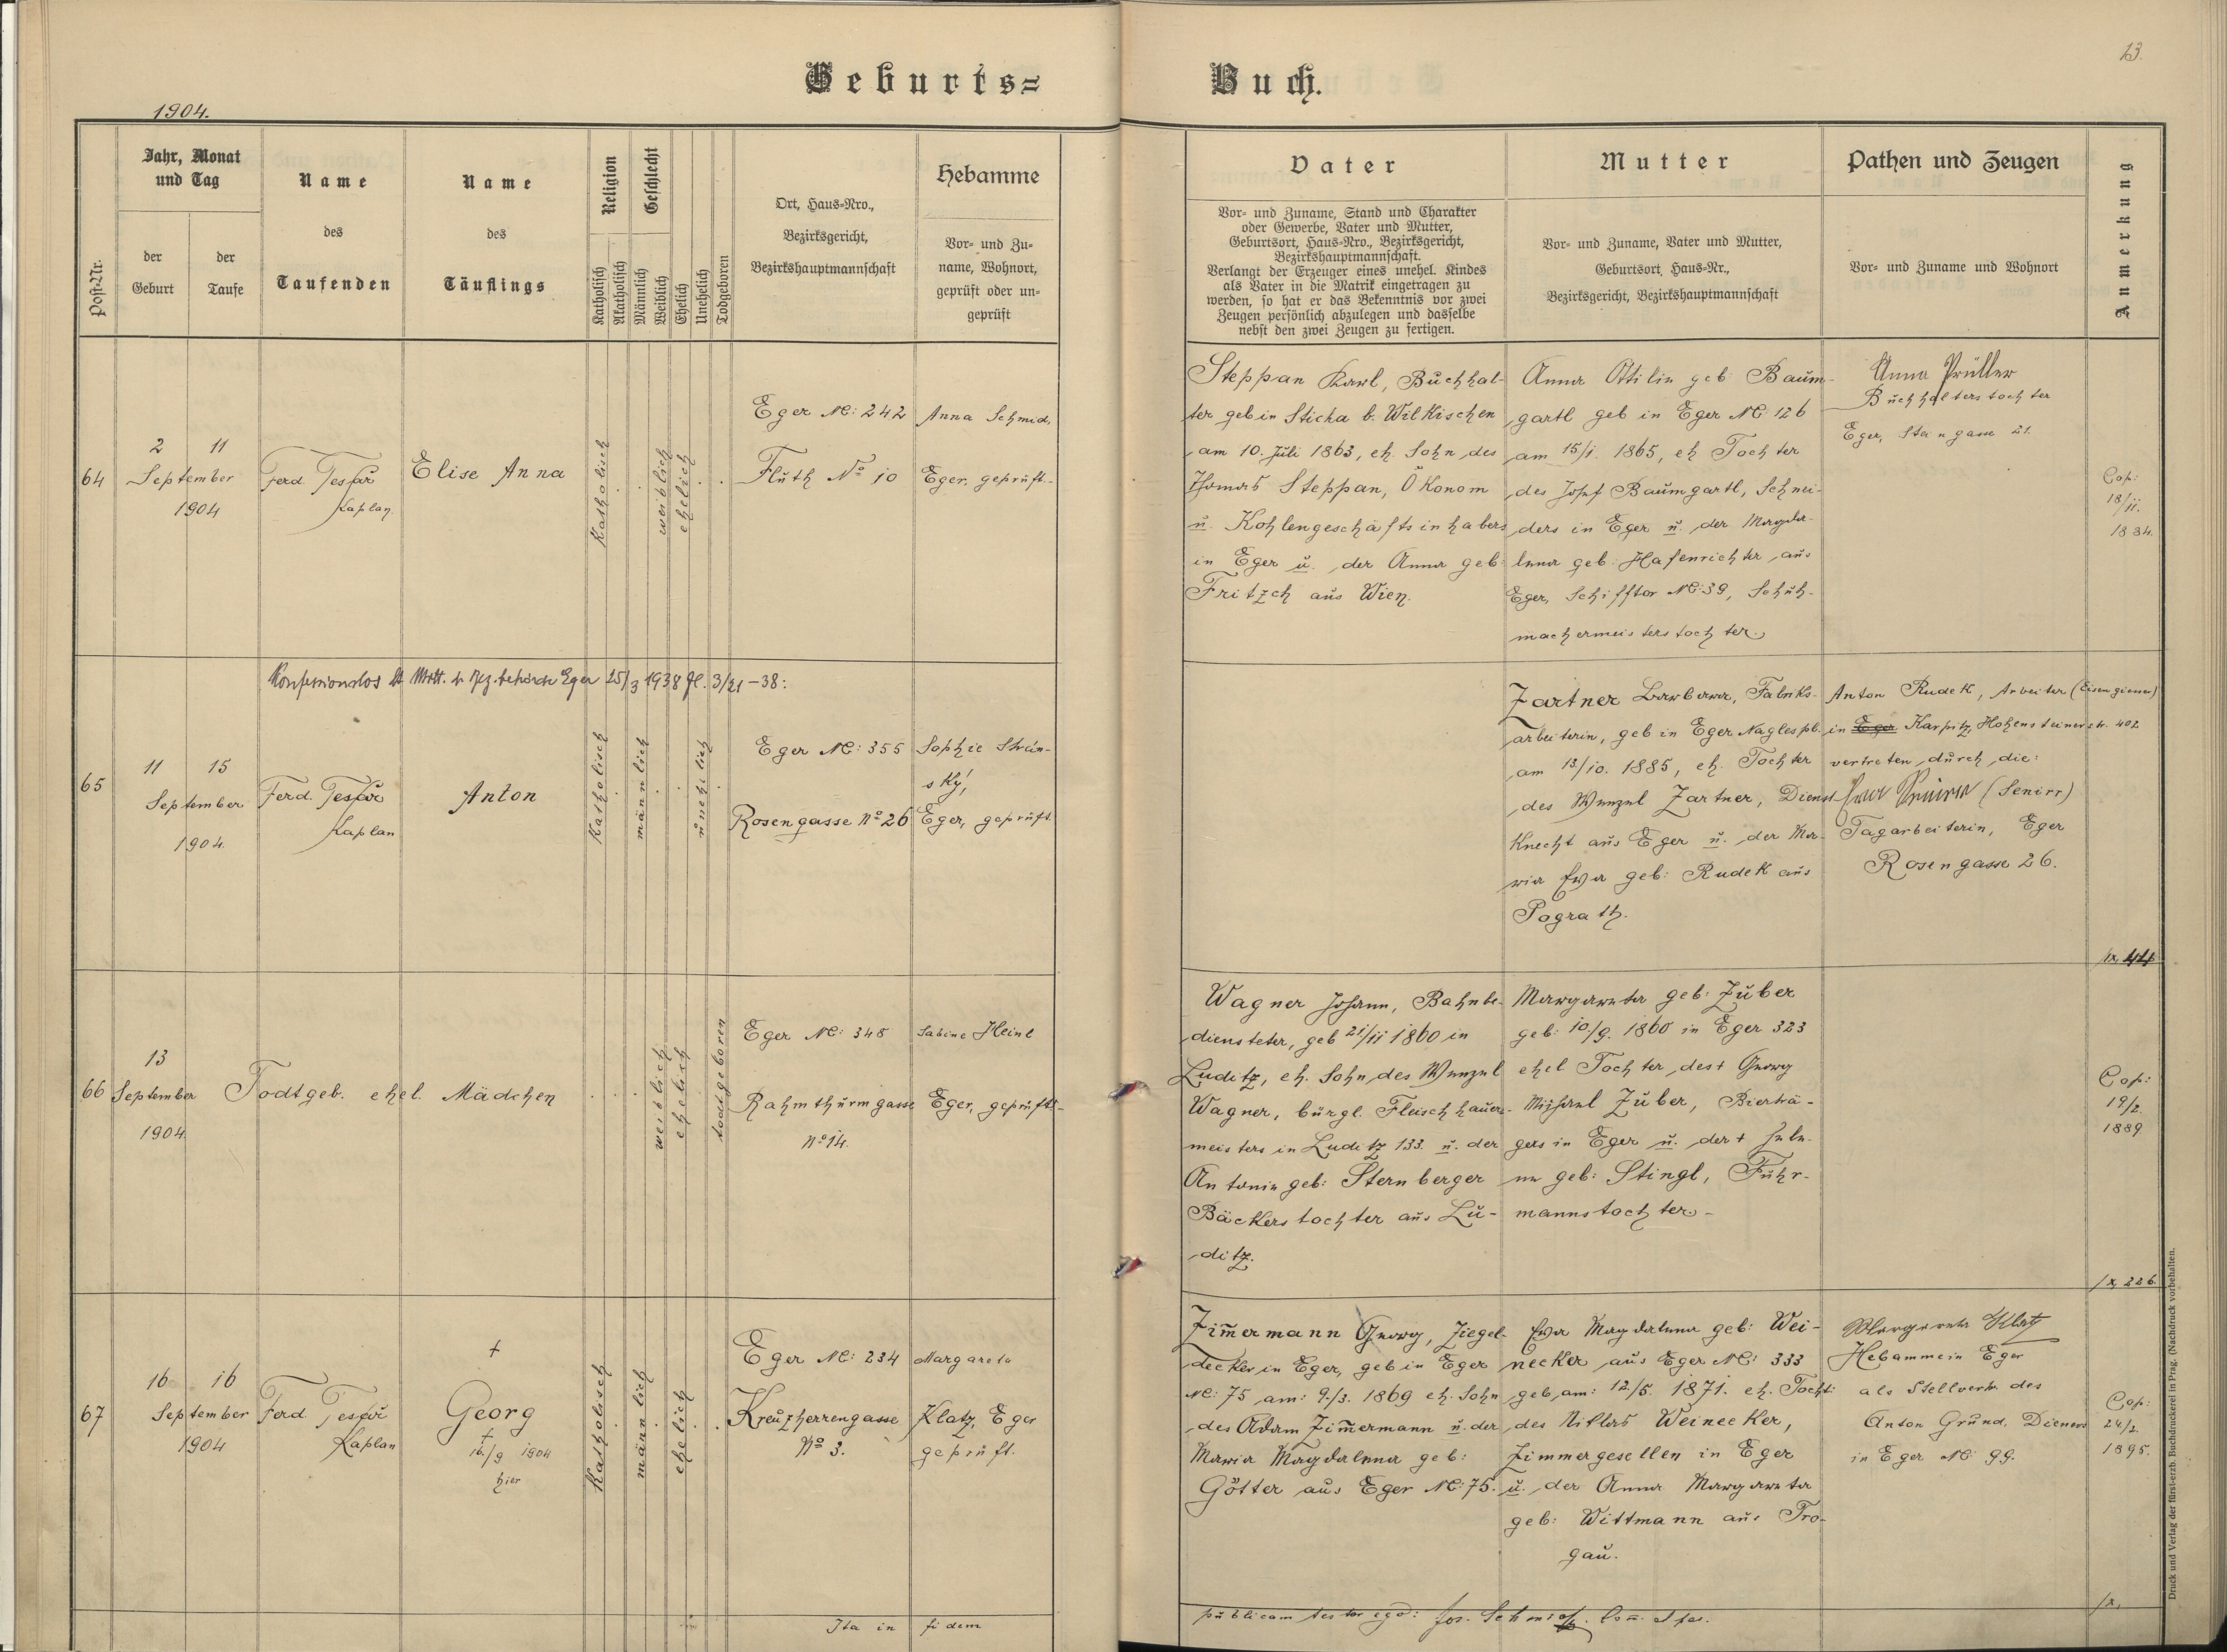 Geburts=
Buch.
13.
1904.
Post-Nr.
Jahr, Monat
und Tag
der
Geburt
der
Taufe
Name
des
Taufenden
Name
des
Täuflings
Religion
Katholisch
Akatholisch
Geschlecht
Männlich
Weiblich
Ehelich
Unehelich
Todgeboren
Ort, Haus=Nro.,
Bezirksgericht,
Bezirkshauptmannschaft
Hebamme
Vor= und Zu=
name, Wohnort,
geprüft oder un=
geprüft
Vater
Vor= und Zuname, Stand und Charakter
oder Gewerbe, Vater und Mutter,
Geburtsort, Haus=Nro., Bezirksgericht,
Bezirkshauptmannschaft.
Verlangt der Erzeuger eines unehel. Kindes
als Vater in die Matrik eingetragen zu
werden, so hat er das Bekenntnis vor zwei
Zeugen persönlich abzulegen und dasselbe
nebst den zwei Zeugen zu fertigen.
Mutter
Vor= und Zuname, Vater und Mutter,
Geburtsort, Haus=Nr.,
Bezirksgericht, Bezirkshauptmannschaft
Pathen und Zeugen
Vor= und Zuname und Wohnort
Anmerkung
64
2 11
September
1904
Ferd. Tesfař
Kaplan.
Elise Anna
Katholisch
weiblich
ehelich
Eger NC: 242
Fluth No 10
Anna Schmid,
Eger, geprüft.
Steppan Karl, Buchhal-
ter geb in Sticha b. Wilkischen
am 10. Juli 1863, eh. Sohn des
Thomas Steppan, Ökonom
u. Kohlengeschäftsinhabers
in Eger u. der Anna geb:
Fritzch aus Wien.
Anna Ottilie geb: Baum-
gartl geb in Eger NC: 126
am 15/1. 1865, eh Tochter
des Josef Baumgartl, Schnei-
ders in Eger u. der Magda-
lena geb: Hafenrichter aus
Eger, Schifftor NC: 39, Schuh-
machermeisterstochter.
Anna Prüller
Buchhalterstochter
Eger, Steingasse 21.
Cop:
18/11.
1884.
Konfessionslos lt Mitt. d. Bez.behörde Eger 25/3 1938 Zl. 3/21-38:
65
11 15
September
1904.
Ferd. Tesfař
Kaplan
Anton
Katholisch
männlich
unehelich
Eger NC: 355
Rosengasse No 26
Sophie Strán-
ský,
Eger, geprüft.
Zartner Barbara, Fabriks-
arbeiterin, geb in Eger Naglespl.
am 13/10. 1885, eh. Tochter
des Wenzel Zartner, Dienst-
knecht aus Eger u. der Ma-
ria Eva geb: Rudek aus
Pograth.
Anton Rudek, Arbeiter (Eisengiesser)
in Eger Karpitz, Hohensteinerstr. 402
vertreten durch die:
Tagarbeiterin, Eger
Rosengasse 26.
66
13
September
1904.
Todtgeb. ehel. Mädchen
weiblich
ehelich
todtgeboren
Eger NC: 348
Rahmthurmgasse
No 14.
Sabine Heinl
Eger, geprüft.
Wagner Johann, Bahnbe-
diensteter, geb 21/11 1860 in
Luditz, eh. Sohn des Wenzel
Wagner, bürgl. Fleischhauer-
meisters in Luditz 133. u. der
Antonie geb: Sternberger
Bäckerstochter aus Lu-
ditz.
Margareta geb: Zuber
geb: 10./9. 1860 in Eger 323
ehel Tochter des + Georg
Michael Zuber, Bierträ-
gers in Eger u. der + Hele-
ne geb: Stingl, Fuhr-
mannstochter.
Cop:
19/2.
1889
67
16 16
September
1904
Ferd. Tesfař
Kaplan
+
Georg
+
16./9 1904
hier
Katholisch
männlich
ehelich
Eger NC: 234
Kreuzherrengasse
No 3.
Margareta
Klatz, Eger
geprüft.
Zim̄ermann Georg, Ziegel-
decker in Eger, geb in Eger
NC: 75 am: 9./3. 1869 eh. Sohn
des Adam Zim̄ermann u. der
Maria Magdalena geb:
Götter aus Eger NC: 75.
Eva Magdalena geb: Wei-
necker aus Eger NC: 333
geb am: 12/5. 1871. eh. Tocht:
des Niklas Weinecker,
Zimmergesellen in Eger
u. der Anna Margareta
geb: Wittmann aus Tro-
gau.
Margareta Klatz
Hebamme in Eger
als Stellvertr. des
Anton Grund, Dieners
in Eger NC: 99.
Cop:
24/2.
1895.
Ita in fidem
publicam testor ego: Jos. Schmid
Druck und Verlag der fürst-erzb. Buchdruckerei in Prag. (Nachdruck vorbehalten.